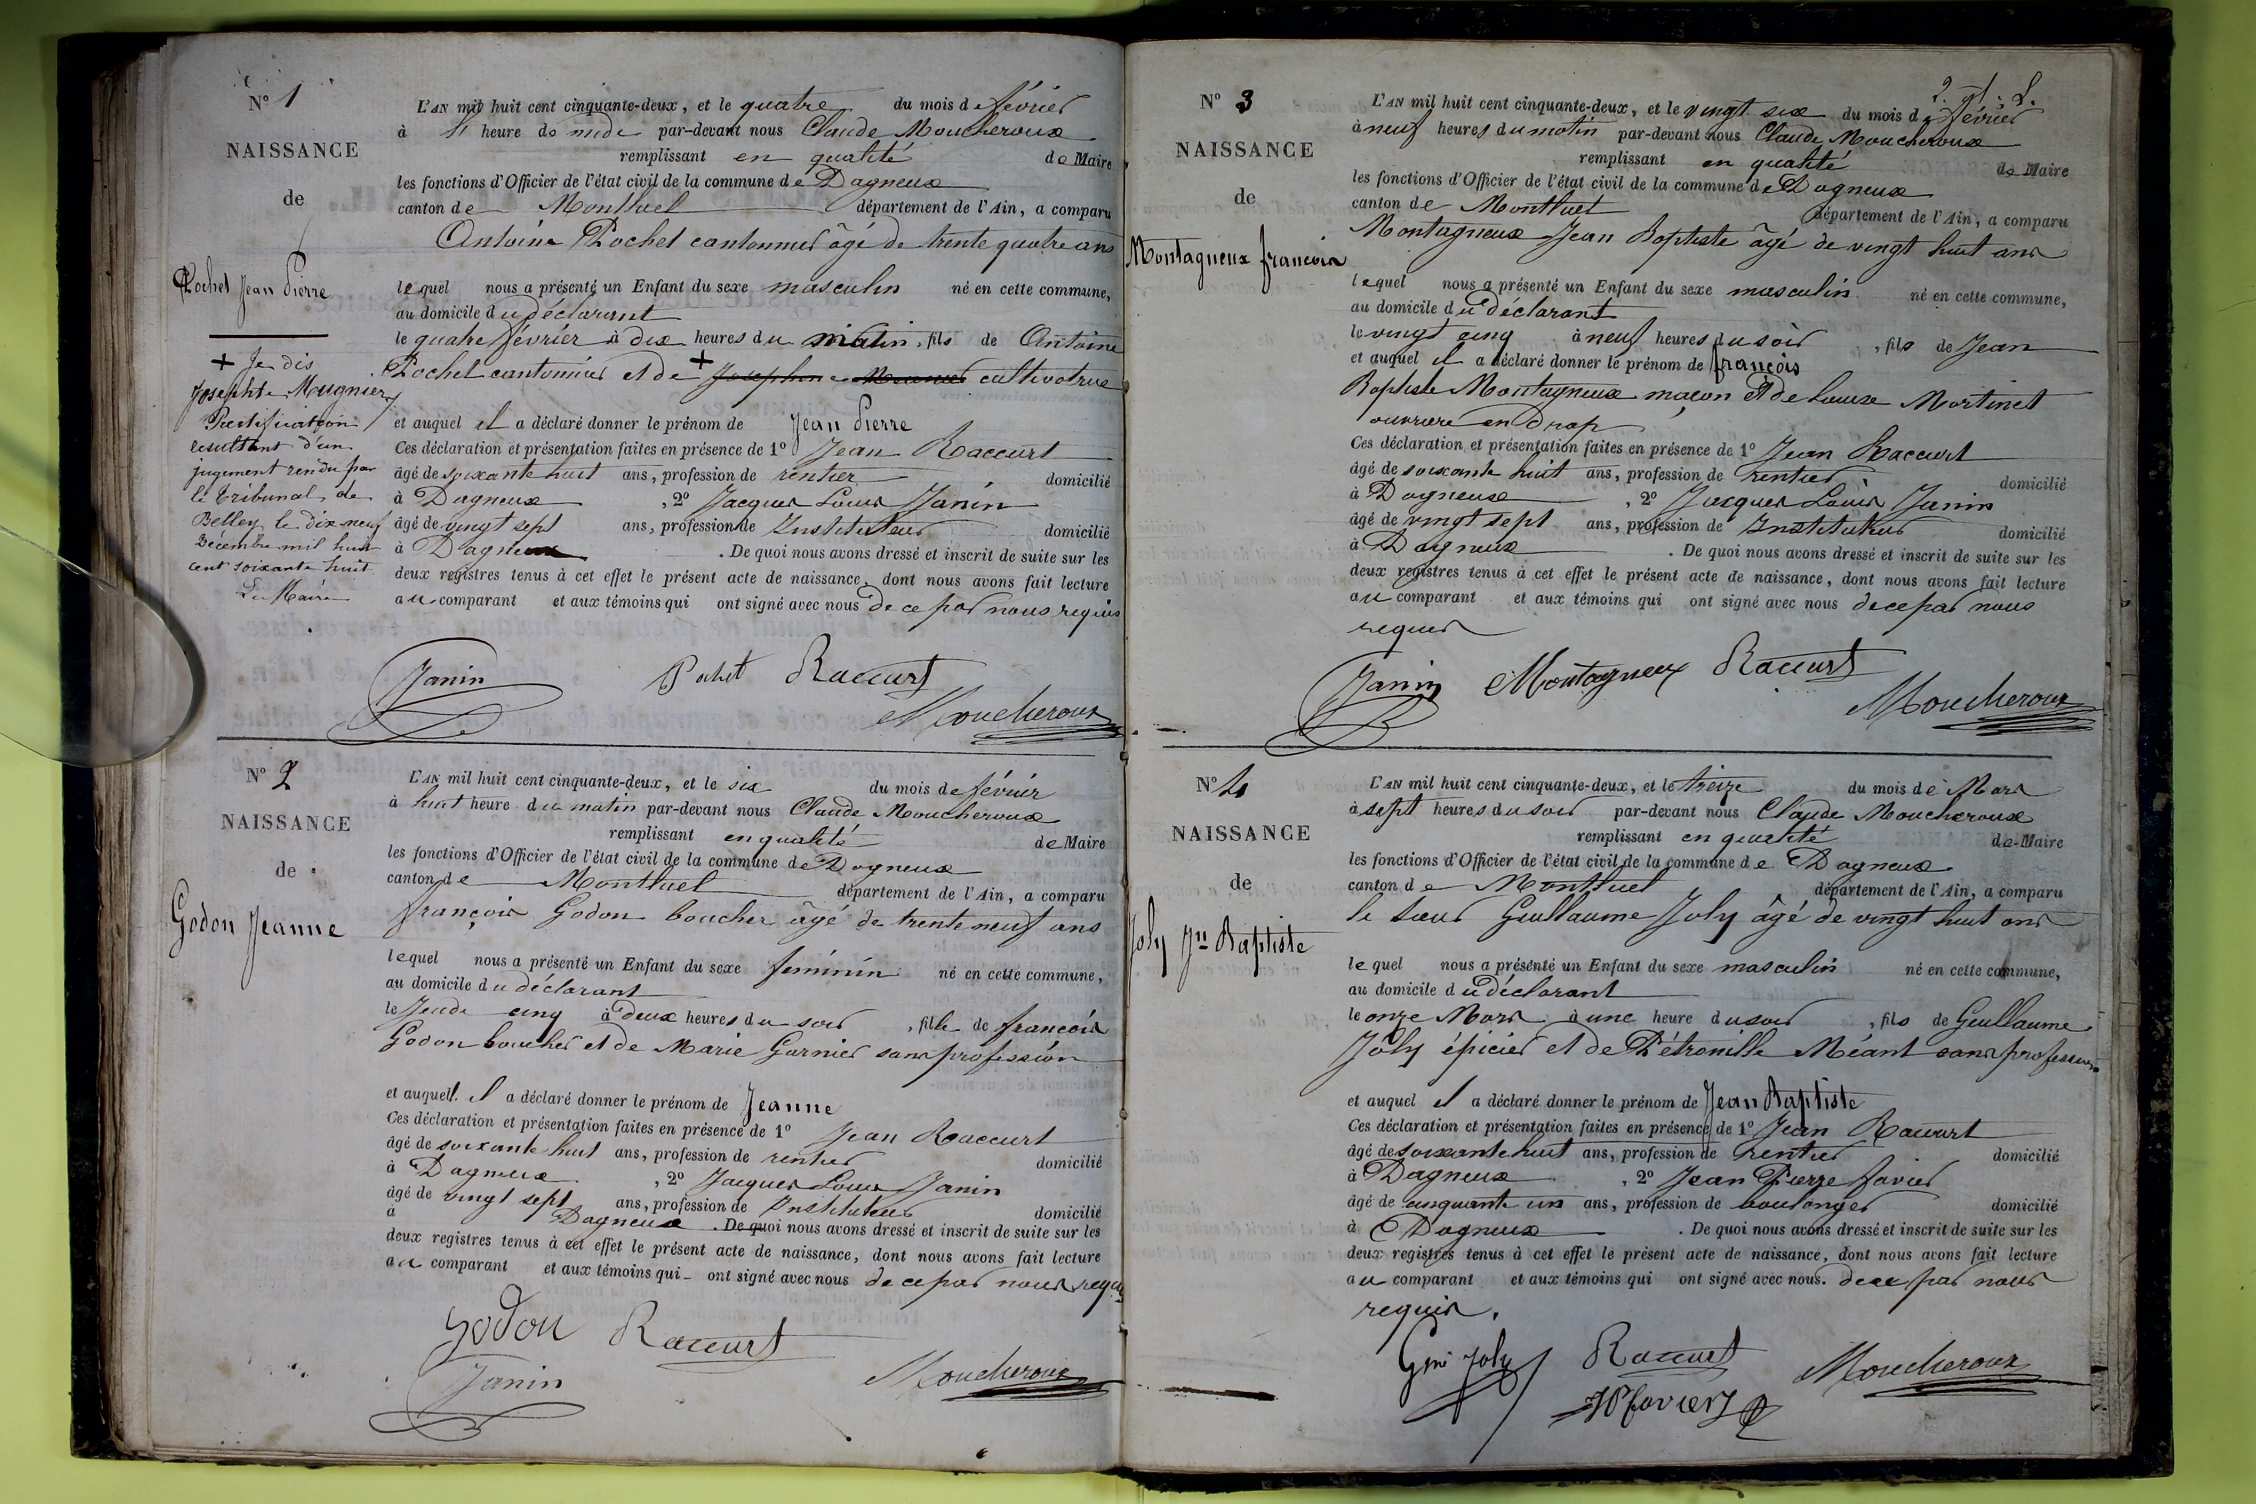 N° 1
NAISSANCE
de
Pochet Jean Pierre
+ Je dis
Josephte Mugnier
Rectification
resultant d'un
jugement rendu par
le tribunal de
Belley le dix neuf
Décembre mil huit
cent soixante huit
Le Maire
L'AN mil huit cent cinquante-deux, et le quatre du mois de février
à heure de midi par-devant nous Claude Moucheroux
remplissant en qualité de Maire
les fonctions d'Officier de l'état civil de la commune de Dagneux
canton de Montluel département de l'Ain, a comparu
Antoine Pochet cantonnier âgé de trente quatre ans
lequel nous a présenté un Enfant du sexe masculin né en cette commune,
au domicile du déclarant
le quatre février à dix heures du matin, fils de Antoine
Pochet cantonnier et de + Josephine cultivatrice
et auquel il a déclaré donner le prénom de Jean Pierre
Ces déclaration et présentation faites en présence de 1° Jean Raccurt
âgé de soixante huit ans, profession de rentier domicilié
à Dagneux, 2° Jacques Louis Janin
âgé de vingt sept ans, profession de Instituteur domicilié
à Dagneux. De quoi nous avons dressé et inscrit de suite sur les
deux registres tenus à cet effet le présent acte de naissance, dont nous avons fait lecture
au comparant et aux témoins qui ont signé avec nous de ce par nous requis
Janin Pochet Raccurt
Moucheroux
N° 2
NAISSANCE
de
Godon Jeanne
L'AN mil huit cent cinquante-deux, et le six du mois de février
à huit heure du matin par-devant nous Claude Moucheroux
remplissant en qualité de Maire
les fonctions d'Officier de l'état civil de la commune de Dagneux
canton de Montluel département de l'Ain, a comparu
françois Godon boucher âgé de trente neuf ans
lequel nous a présenté un Enfant du sexe féminin né en cette commune,
au domicile du déclarant
le Jeudi cinq à deux heures du soir, fille de françois
Godon boucher et de Marie Garnier sans profession
et auquell. il a déclaré donner le prénom de Jeanne
Ces déclaration et présentation faites en présence de 1° Jean Raccurt
âgé de soixante huit ans, profession de rentier domicilié
à Dagneux, 2° Jacques Louis Janin
âgé de vingt sept ans, profession de Instituteur domicilié
à Dagneux. De quoi nous avons dressé et inscrit de suite sur les
deux registres tenus à cet effet le présent acte de naissance, dont nous avons fait lecture
au comparant et aux témoins qui ont signé avec nous de ce par nous requis
Godon Raccurt
Janin Moucheroux
N° 3
NAISSANCE
de
Montagneux françois
L'AN mil huit cent cinquante-deux, et le vingt six du mois de février
à neuf heures du matin par-devant nous Claude Moucheroux
remplissant en qualité de Maire
les fonctions d'Officier de l'état civil de la commune de Dagneux
canton de Montluel département de l'Ain, a comparu
Montagneux Jean Baptiste âgé de vingt huit ans
lequel nous a présenté un Enfant du sexe masculin né en cette commune,
au domicile du déclarant
le vingt cinq à neuf heures du soir, fils de Jean
et auquel il a déclaré donner le prénom de françois
Baptiste Montagneux maçon et de Louise Martinet
ouvriere en Drap
Ces déclaration et présentation faites en présence de 1° Jean Raccurt
âgé de soixante huit ans, profession de rentier domicilié
à Dagneux, 2° Jacques Louis Janin
âgé de vingt sept ans, profession de Instituteur domicilié
à Dagneux. De quoi nous avons dressé et inscrit de suite sur les
deux registres tenus à cet effet le présent acte de naissance, dont nous avons fait lecture
au comparant et aux témoins qui ont signé avec nous de ce par nous
requis
Janin Montagneux Raccurt
Moucheroux
N° 4
NAISSANCE
de
Joly Jn Baptiste
L'AN mil huit cent cinquante-deux, et le treize du mois de Mars
à sept heures du soir par-devant nous Claude Moucheroux
remplissant en qualité de Maire
les fonctions d'Officier de l'état civil de la commune de Dagneux
canton de Montluel département de l'Ain, a comparu
le sieur Guillaume Joly âgé de vingt huit ans
lequel nous a présenté un Enfant du sexe masculin né en cette commune,
au domicile du déclarant
le onze Mars à une heure du soir, fils de Guillaume
Joly épicier et de Pétronille Méant sans profession
et auquel il a déclaré donner le prénom de Jean Baptiste
Ces déclaration et présentation faites en présence de 1° Jean Raccurt
âgé de soixante huit ans, profession de rentier domicilié
à Dagneux, 2° Jean Pierre favier
âgé de cinquante un ans, profession de boulanger domicilié
à Dagneux. De quoi nous avons dressé et inscrit de suite sur les
deux registres tenus à cet effet le présent acte de naissance, dont nous avons fait lecture
au comparant et aux témoins qui ont signé avec nous. de ce par nous
requis.
Gme Joly Raccurt Moucheroux
JP favier